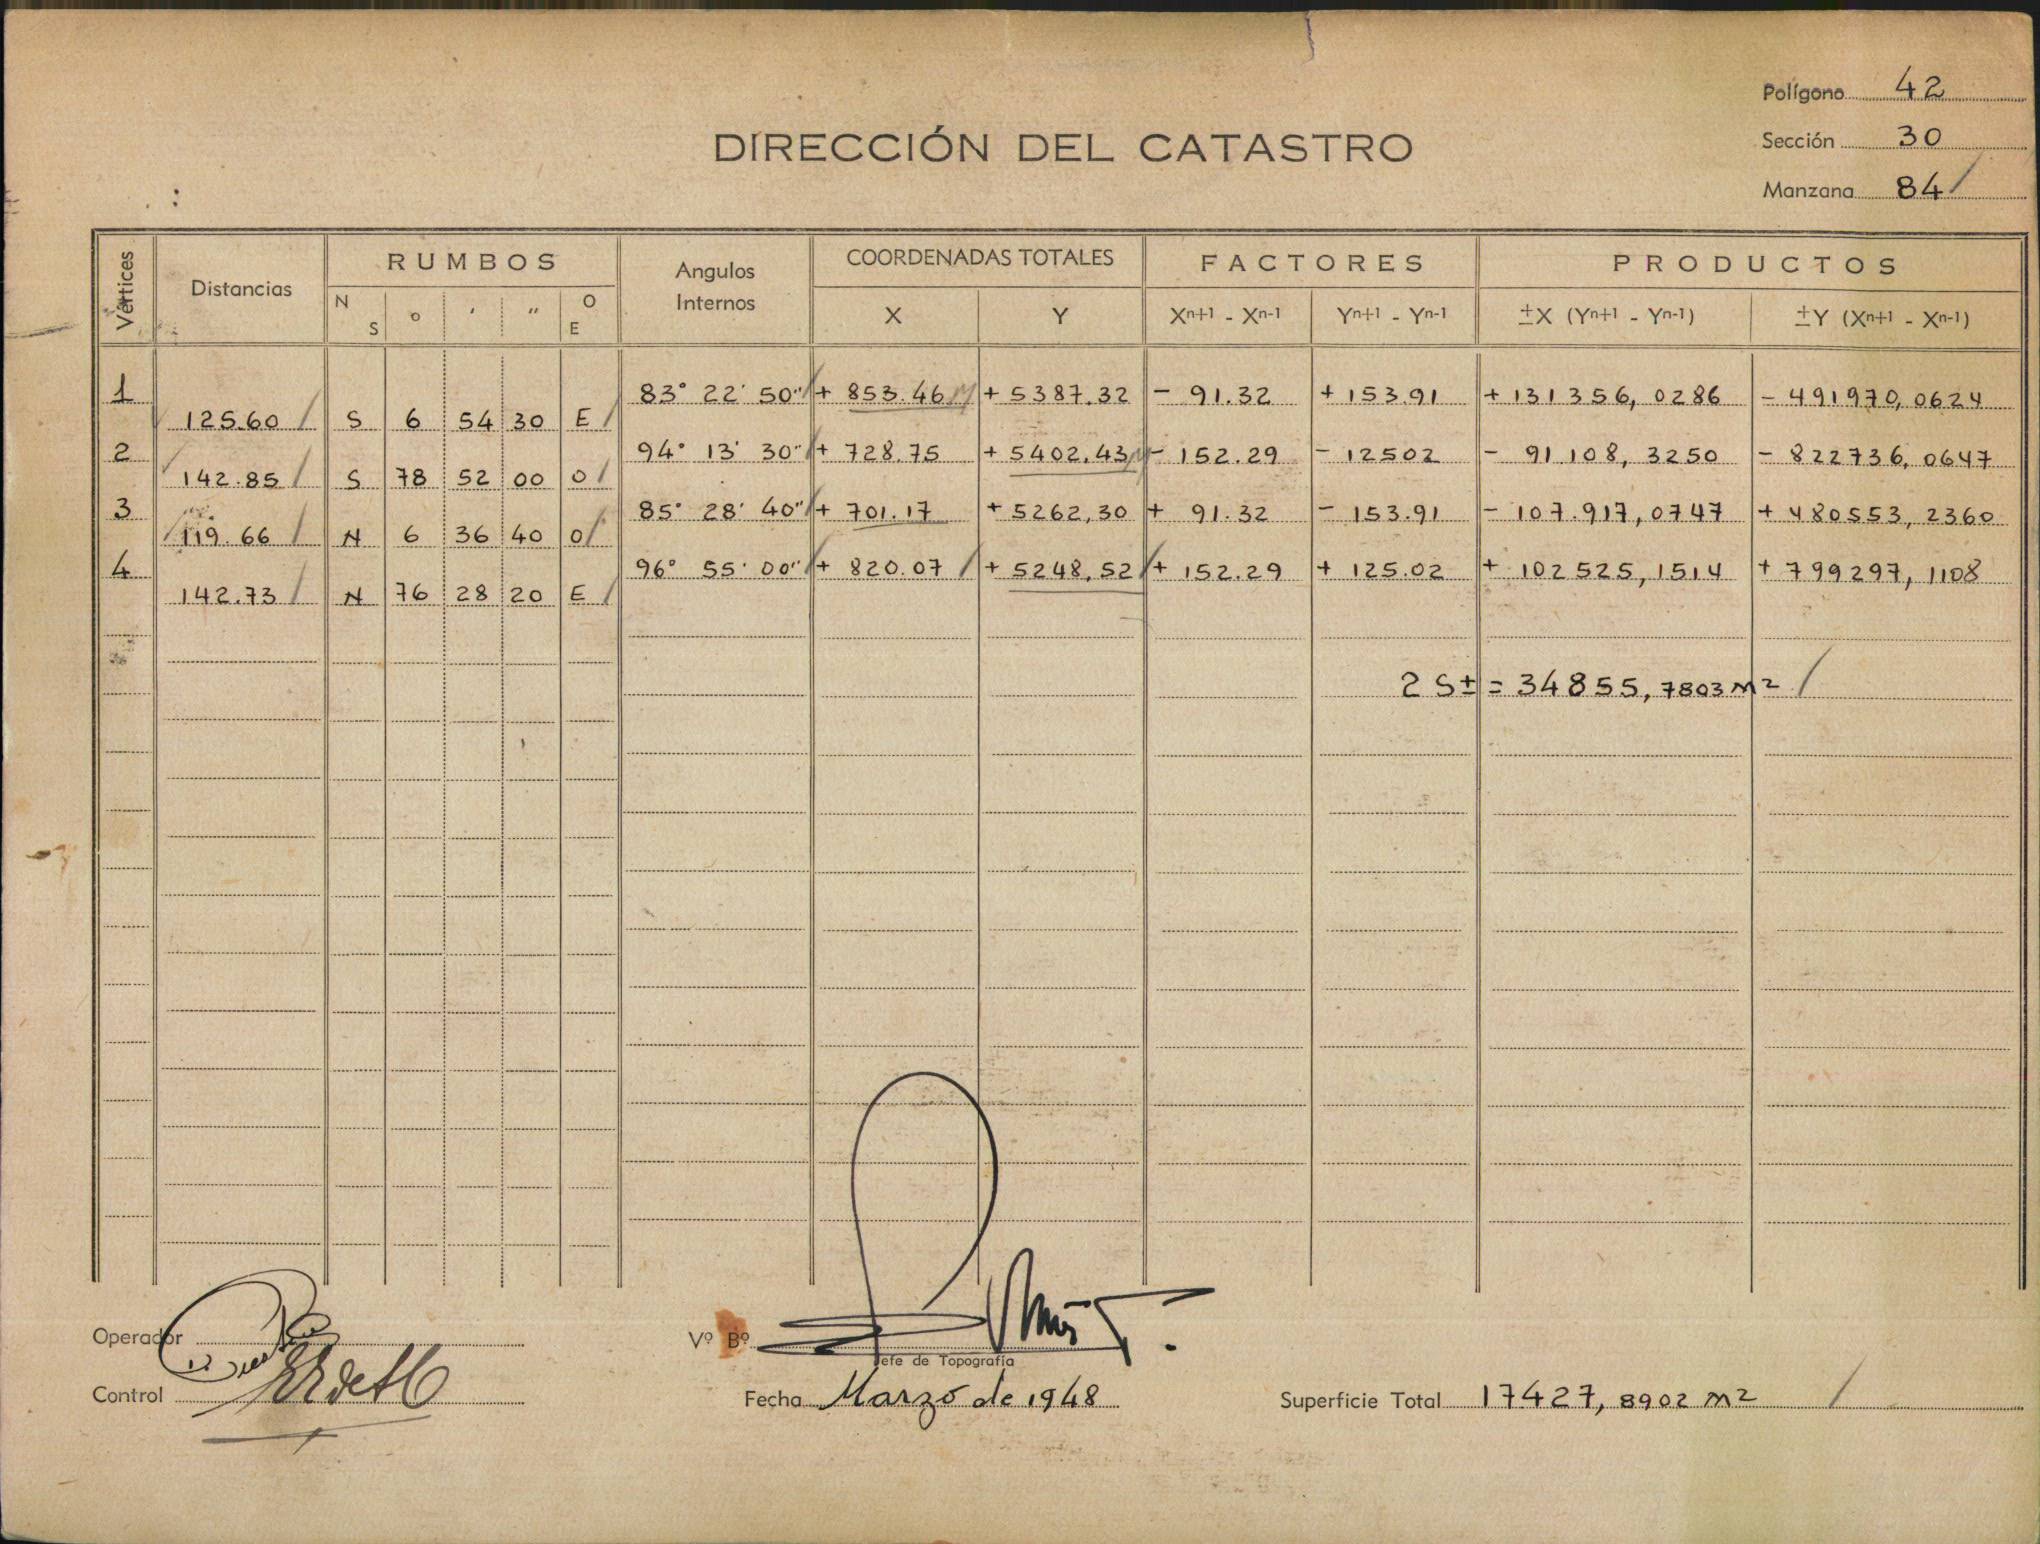 Polígono 42
DIRECCIÓN DEL CATASTRO
Sección 30
Manzana 84
Vértices Distancias RUMBOS Angulos Internos COORDENADAS TOTALES FACTORES PRODUCTOS
N S ° ' " O E X Y Xn+1 - Xn-1 Yn+1 - Yn-1 ±X (Yn+1 - Yn-1) ±Y (Xn+1 - Xn-1)
1 83° 22' 50" + 853.46 + 5387.32 - 91.32 + 153.91 + 131356,0286 - 491970,0624
125.60 S 6 54 30 E
2 94° 13' 30" + 728.75 + 5402.43 - 152.29 - 12502 - 91108,3250 - 822736,0647
142.85 S 78 52 00 O
3 85° 28' 40" + 701.17 + 5262,30 + 91.32 - 153.91 - 107.917,0747 + 480553,2360
119.66 N 6 36 40 O
4 96° 55' 00" + 820.07 + 5248,52 + 152.29 + 125.02 + 102525,1514 + 799297,1108
142.73 N 76 28 20 E
2 S± = 34855,7803 m²
Operador
Vº Bº
Jefe de Topografía
Control
Fecha Marzo de 1948
Superficie Total 17427,8902 m²